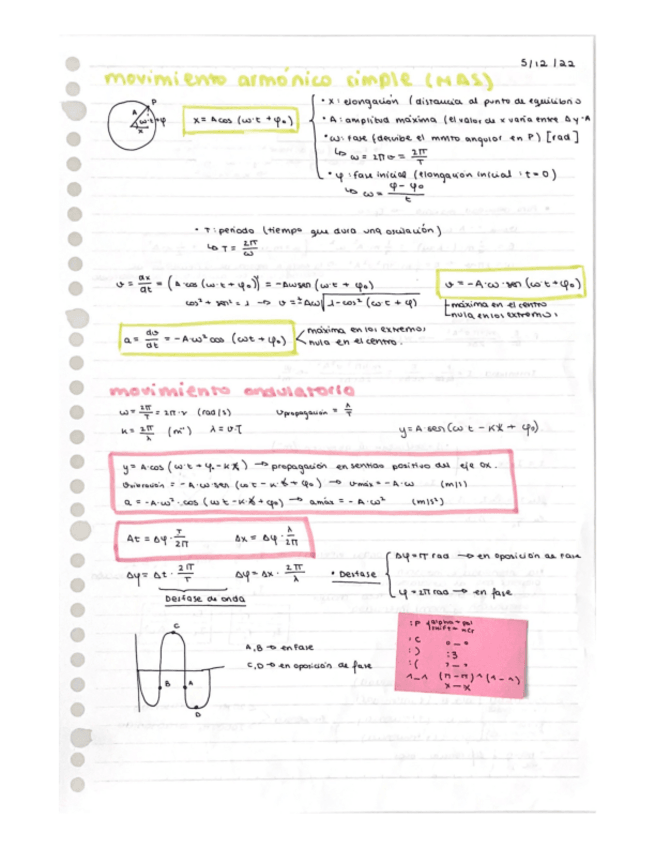 5/12/22
movimiento armónico simple (MAS)
x = A cos (ω·t + φ₀)
• x: elongación (distancia al punto de equilibrio)
• A: amplitud máxima (el valor de x varía entre
• ω: fase (describe el mmto angular en P) [rad]
↳ ω = 2πν = 2π/T
• φ: fase inicial (elongación inicial: t=0)
↳ ω = φ-φ₀/t
P
A
ω·t+φ
x
• T: periodo (tiempo que dura una oscilación)
↳ T = 2π/ω
v = dx/dt = (A·cos (ω·t + φ₀))' = -Aω sen (ω·t + φ₀)
cos² + sen² = 1 → v = ±Aω√1-cos² (ω·t + φ)
v = -A·ω·sen (ω·t+φ₀)
máxima en el centro
nula en los extremos
a = dv/dt = -A·ω² cos (ωt + φ₀)
máxima en los extremos
nula en el centro.
movimiento ondulatorio
ω = 2π/T = 2π·ν (rad/s)
v propagación = λ/T
k = 2π/λ (m⁻¹) λ = v·T
y = A·sen(ωt - kx + φ₀)
y = A·cos (ω·t + φ₀ - kx) → propagación en sentido positivo del eje Ox.
v vibración = -A·ω·sen (ωt - k·x + φ₀) → vmáx = -A·ω (m/s)
a = -A·ω²·cos (ωt - k·x + φ₀) → amáx = -A·ω² (m/s²)
Δt = Δφ · T/2π Δx = Δφ · λ/2π
Δφ = Δt · 2π/T Δφ = Δx · 2π/λ
Desfase de onda
• Desfase
Δφ = π rad → en oposición de fase
φ = 2π rad → en fase
A, B → en fase
C, D → en oposición de fase
C
B
A
D
:P
:C
:) :3
:(
^_^ (n-n) ^(^-^)
x-x